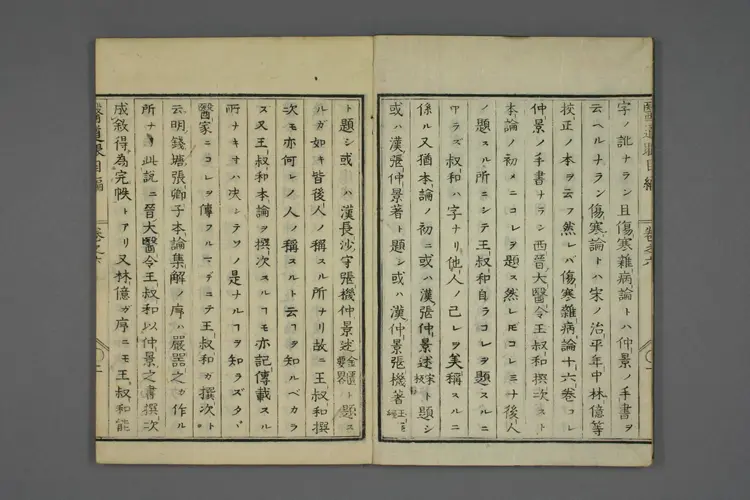 字ノ訛ナラン且傷寒雜病論トハ仲景ノ手書ヲ
云ヘルナラン傷寒論トハ宋ノ治平年中林億等
校正ノ本ヲ云フ然レバ傷寒雜病論十六卷コレ
仲景ノ手書ナラン西晉大醫令王叔和撰次スト
本論ノ初メニコレヲ題ス然レ𪜈コレミナ後人
ノ題スル所ニシテ王叔和自ラコレヲ題スルニ
アラズ叔和ハ字ナリ他人ノ己レヲ美稱スルニ
係ル又猶本論ノ初ニ或ハ漢張仲景述ト題シ
或ハ漢張仲景著ト題シ或ハ漢仲景張機著
ト題シ或ハ漢長沙守張機仲景述ト題ス
ルガ如キ皆後人ノ稱スル所ナリ故ニ王叔和撰
次モ亦何レノ人ノ稱スルト云フヿヲ知ルベカラ
ズ又王叔和本論ヲ撰次スルヿモ亦記傳載スル
所ナキキハ决シテソノ是ナルヿヲ知ラズタヾ
醫家ニコレヲ傳フルマデニテ王叔和ガ撰次ト
云明錢塘張卿子本論集解ノ序ハ嚴器之ガ作ル
所ナリ此説ニ晉大醫令王叔和以仲景之書撰次
成敘得為完帙トアリ又林億ガ序ニモ王叔和能